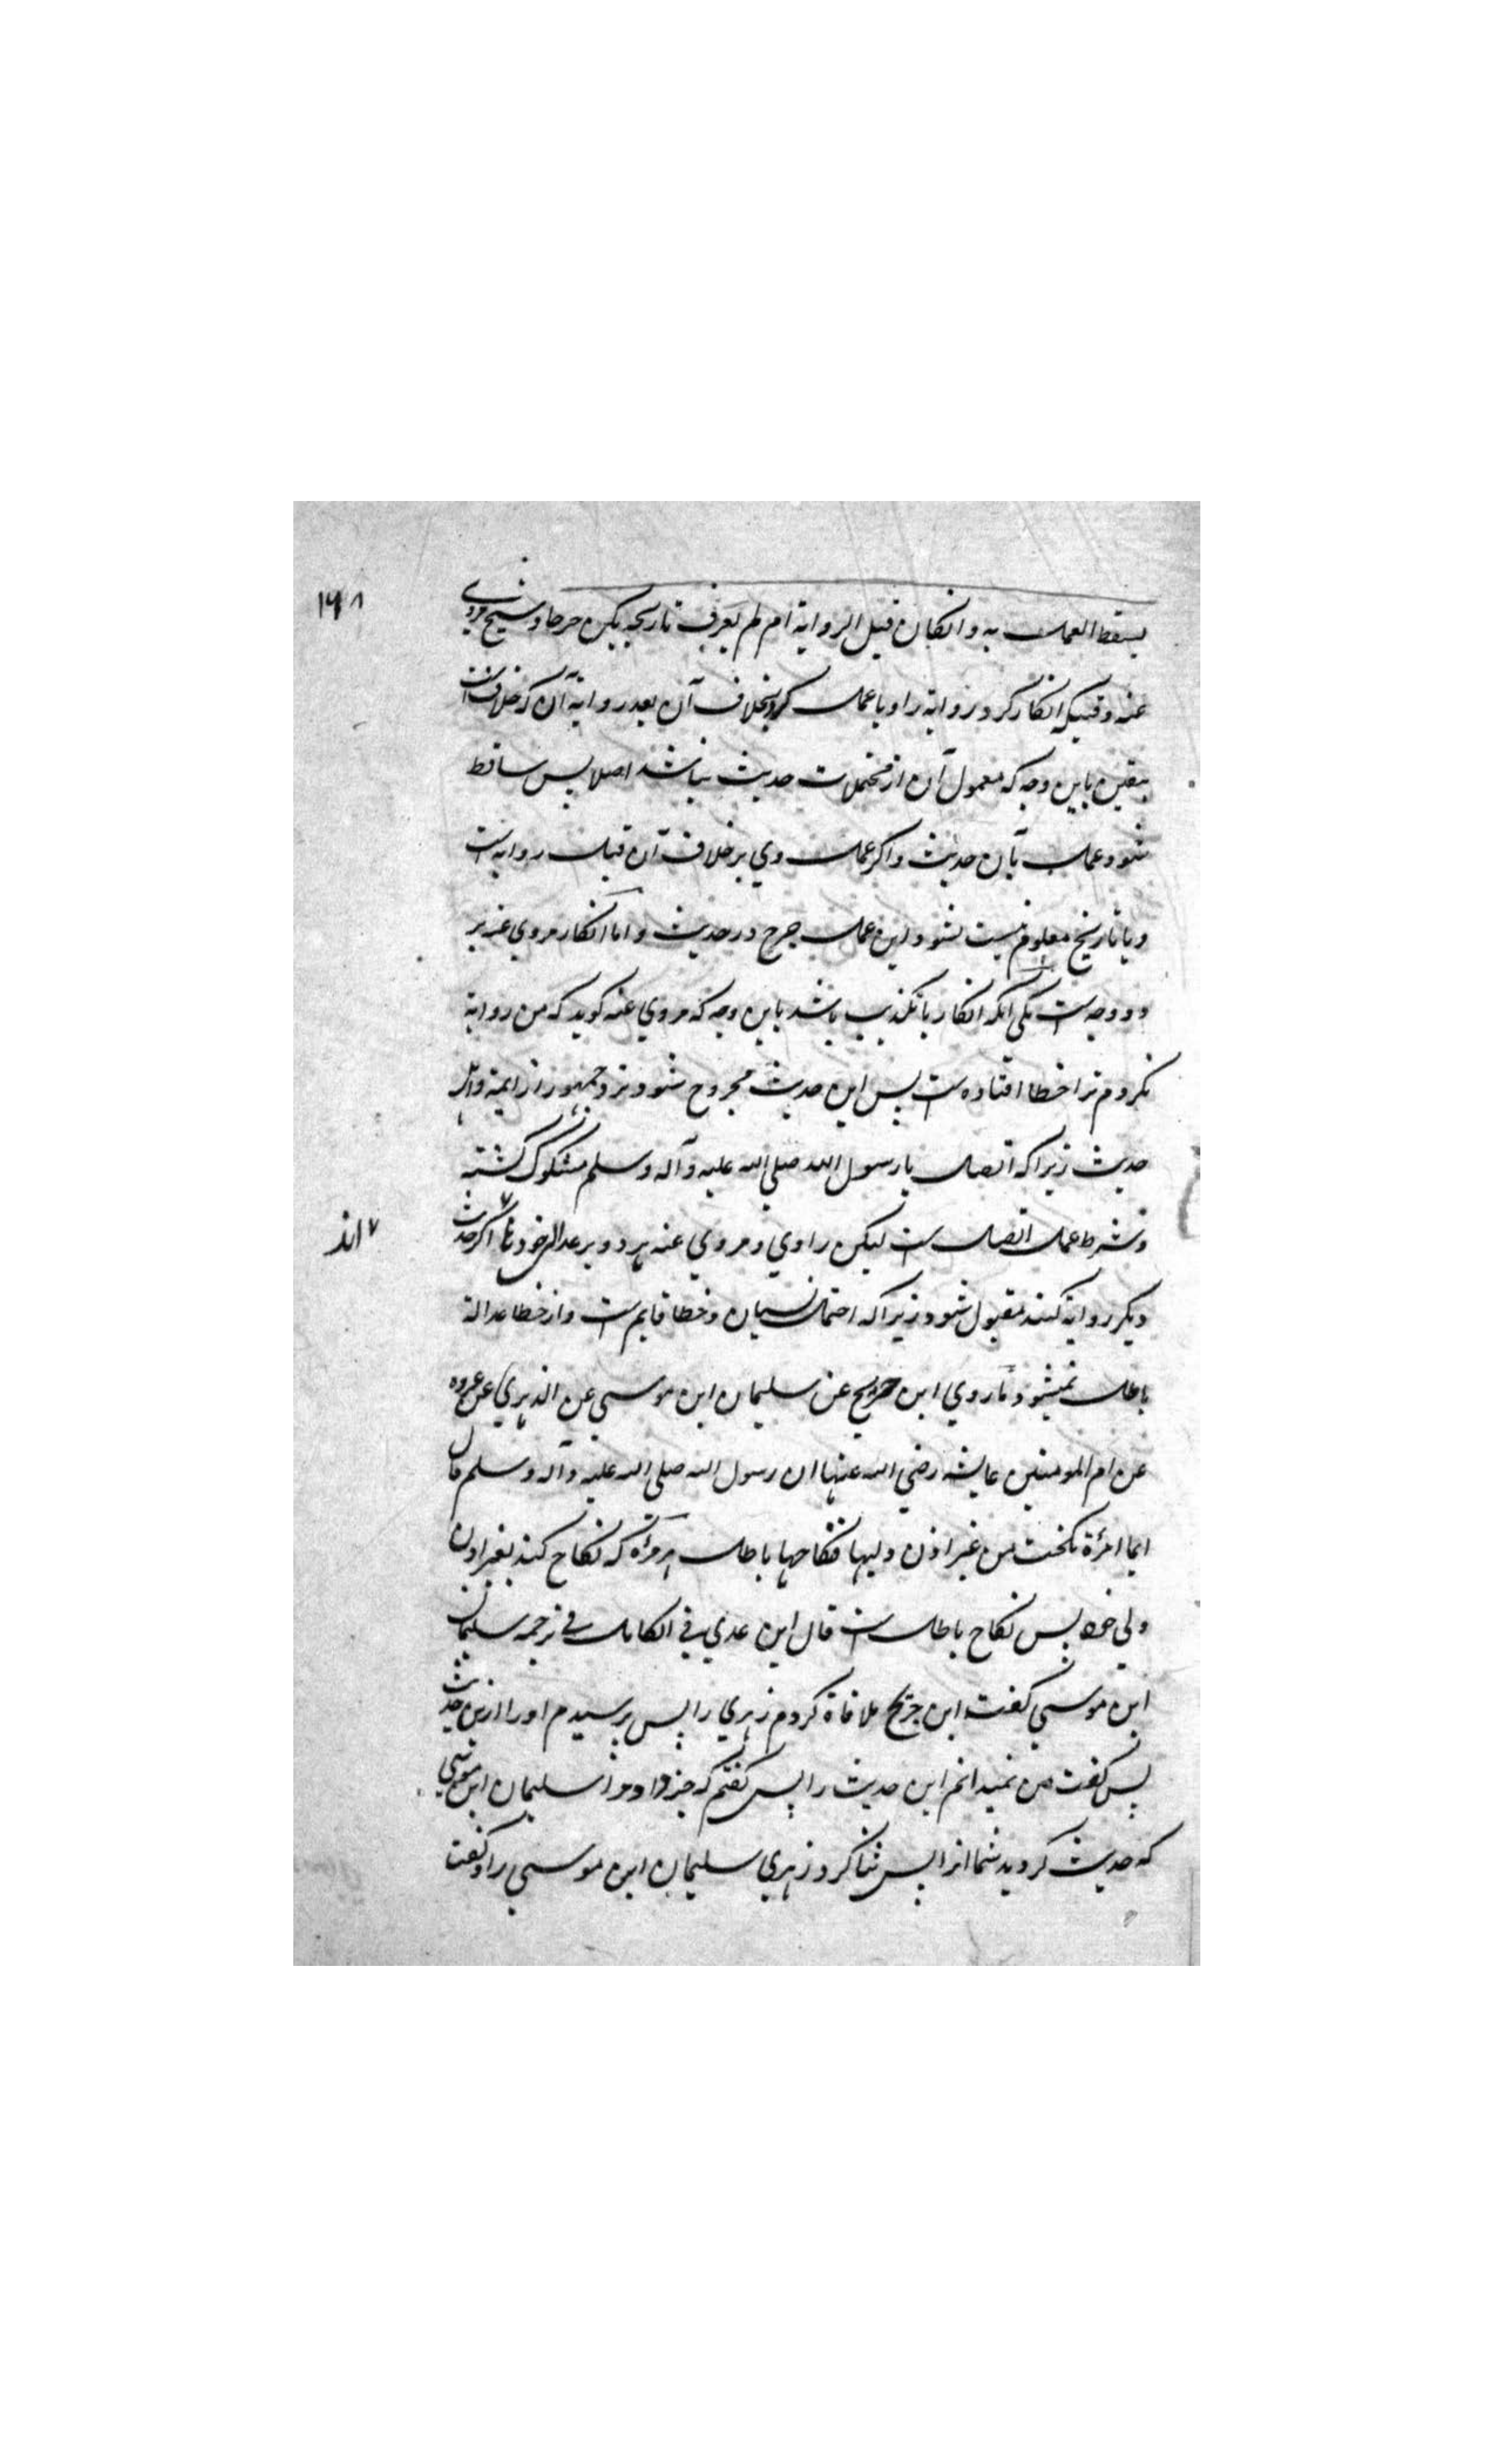 ۱۶۸
یسقط العمل به و انکان قبل الروایة ام لم یعرف تاریخه لیکن جرحا و شیخ مروی
عنه وقتیکه انکار کرد روایة را و یا عمل کرد بخلاف آن بعد روایة آن که خلاف است
بیقین باین وجه که معمول آن از محتملات حدیث نباشد اصلا پس ساقط
شود عمل بآن حدیث و اکر عمل وی بر خلاف آن قبل روایه است
و یا تاریخ معلوم نیست نشود این عمل جرح در حدیث و اما انکار مروی عنه بر
دو وجه ست یکی انکه انکار با تکذیب باشد باین وجه که مروی عنه کوید که من روایة
نکردم ترا خطا افتاده ست پس این حدیث مجروح شود نزد جمهور از ایمة و اهل
حدیث زیراکه اتصال با رسول الله صلی الله علیه و آله و سلم مشکوک کشته
و شرط عمل اتصال ست لیکن راوی و مروی عنه هر دو بر عدالة خود اکر حدیث
اند
دیکر روایة کنند مقبول شود زیراکه احتمال نسیان و خطا قایم ست و از خطا عدالة
باطل نمیشود ما روی ابن جریح عن سلیمان ابن موسی عن الذهری عن عروه
عن ام المومنین عایشه رضی الله عنها ان رسول الله صلی الله علیه و آله و سلم قال
ایما امرأة نکحت من غیر اذن ولیها فنکاحها باطل هر مرأة که نکاح کند بغیر اذن
ولی خود پس نکاح باطل ست قال ابن عدی فی الکامل فی ترجمه سلیمان
ابن موسی کفت ابن جریح ملاقاة کردم زهری را پس پرسیدم او را ازین حدیث
پس کفت من نمیدانم این حدیث را پس کفتم که خبر داد مرا سلیمان ابن موسی
که حدیث کردید شما انرا پس ثنا کرد زهری سلیمان ابن موسی را و کفت